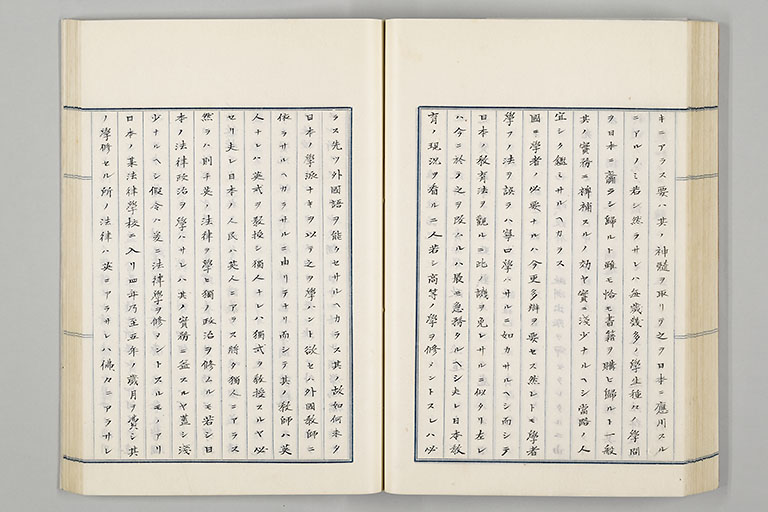 キニアラス要ハ其ノ神髄ヲ取リヲ之ヲ日本ニ應用スル
ニアルノミ若シ然ラサレハ毎歳幾多ノ學生種々ノ學問
ヲ日本ニ齎ラシ歸ルト雖モ恰モ書籍ヲ購ヒ歸ルト一般
其ノ實務ニ裨補スルノ効ヤ實ニ淺少ナルヘシ當路ノ人
宜シク鑑ミサルヘカラス
國ニ學者ノ必要ナルハ今更多辯ヲ要セス然レトモ學者
學フノ法ヲ誤ラハ寧ロ學ハサルニ如カサルヘシ而シテ
日本ノ教育法ヲ觀ルニ此ノ譏ヲ免レサルニ似タリ左レ
ハ今ニ於テ之ヲ改ムルハ最モ急務タルヘシ夫レ日本教
育ノ現況ヲ看ルニ人若シ高等ノ學ヲ修メントスレハ必
ラス先ツ外國語ヲ能クセサルヘカラス其ノ故如何未タ
日本ノ學派ナキヲ以テ之ヲ學ハント欲セハ外國教師ニ
依ラサルヘカラサルニ由リテナリ而シテ其ノ教師ハ英
人ナレハ英式ヲ教授シ獨人ナレハ獨式ヲ教授スルヤ必
セリ夫レ日本ノ人民ハ英人ニアラス將タ獨人ニアラス
然ラハ則チ英ノ法律ヲ學ヒ獨ノ政治ヲ修ムルモ若シ日
本ノ法律政治ヲ學ハサレハ其ノ實務ニ益スルヤ蓋シ淺
少ナルヘシ假令ハ爰ニ法律學ヲ修メントスルモノアリ
日本ノ某法律學校ニ入リ四年乃至五年ノ歳月ヲ費シ其
ノ學修セル所ノ法律ハ英ニアラサレハ佛々ニアラサレ